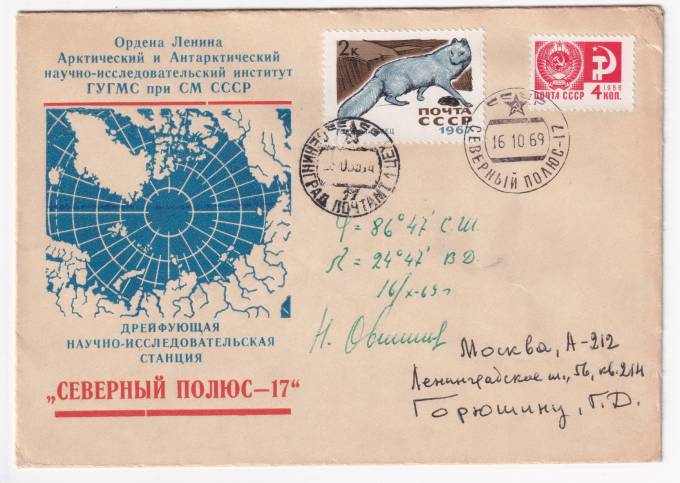 Ордена Ленина
Арктический и Антарктический
научно-исследовательский институт
ГУГМС при СМ СССР
2к
ПОЧТА
СССР
ПОЧТА СССР
1966
4 КОП.
ЛЕНИНГРАД ПОЧТАМТ
16 10 69
СЕВЕРНЫЙ ПОЛЮС-17
φ = 86°47' С.Ш.
λ = 24°47' В.Д.
16/X-69г
Н.
ДРЕЙФУЮЩАЯ
НАУЧНО-ИССЛЕДОВАТЕЛЬСКАЯ
СТАНЦИЯ
„СЕВЕРНЫЙ ПОЛЮС—17“
Москва, А-212
Ленинградское ш., 56, кв. 214
Горюшину, Г.Д.